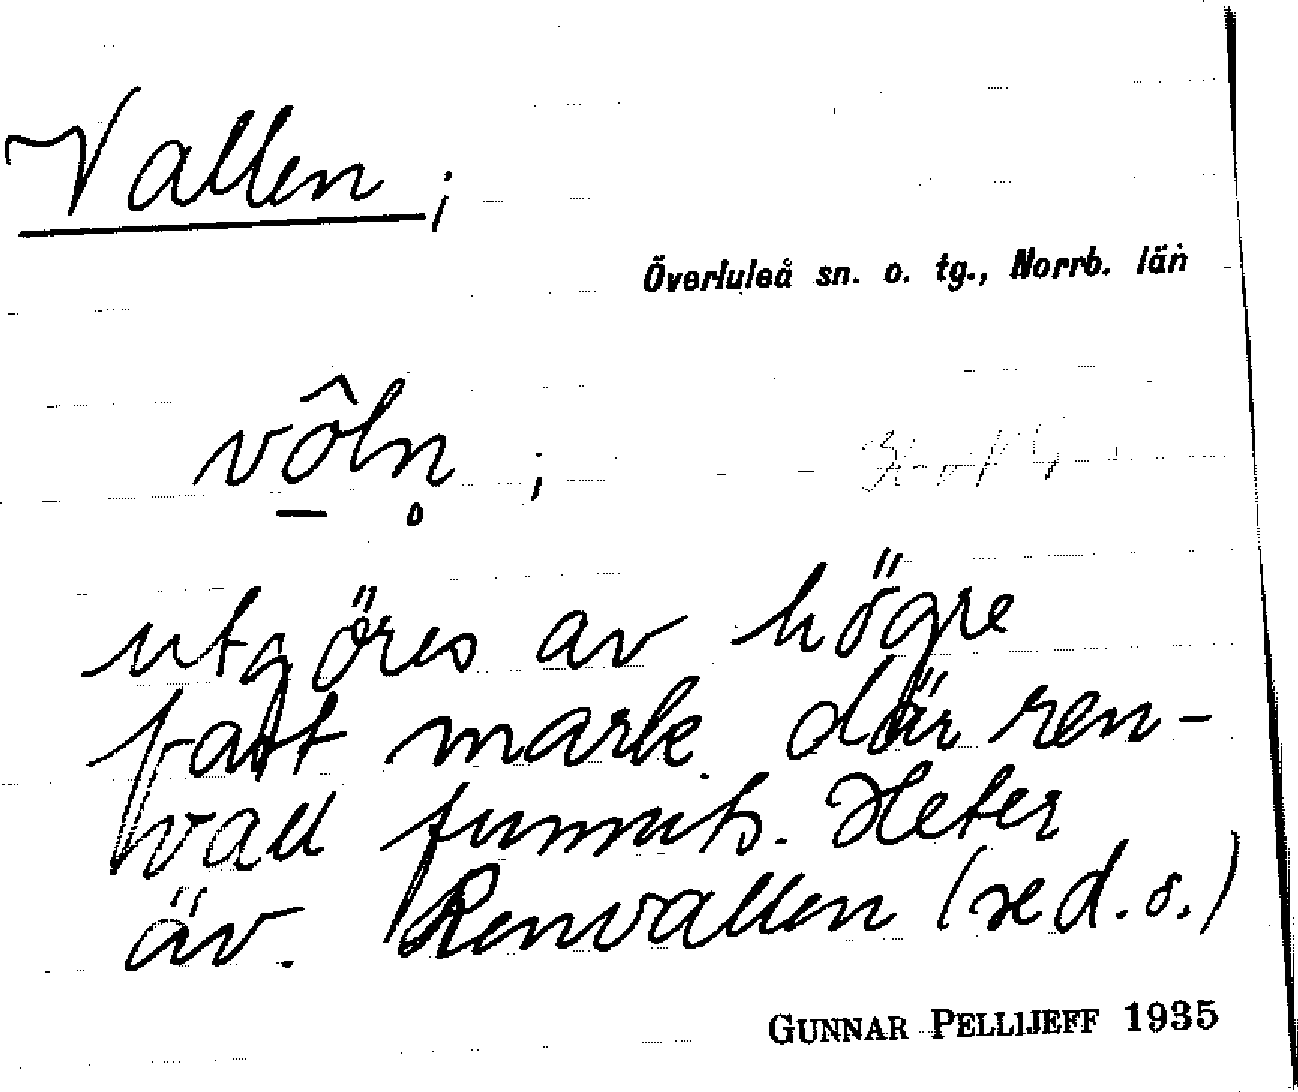 Vallen;
Överluleå sn. o. tg., Norrb. län
vô̱ln̥ ;
utgöres av högre
fast mark där ren-
vall funnits. Heter
äv. Renvallen (se d.o.)
GUNNAR PELLIJEFF 1935